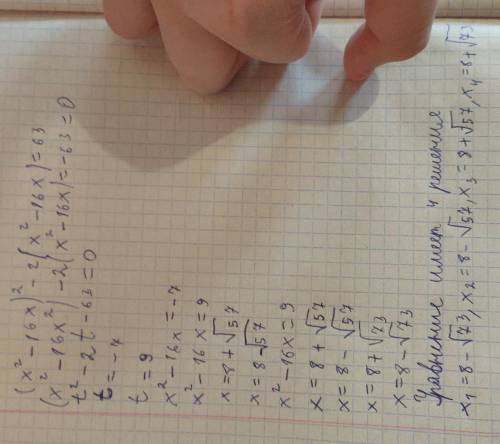 (x² - 16x)² - 2(x² - 16x) = 63
(x² - 16x²) - 2(x² - 16x) = -63 = 0
t² - 2t - 63 = 0
t = -7
t = 9
x² - 16x = -7
x² - 16x = 9
x = 8 + √57
x = 8 - √57
x² - 16x = 9
x = 8 + √57
x = 8 - √57
x = 8 + √73
x = 8 - √73
Уравнение имеет 4 решения
x₁ = 8 - √73, x₂ = 8 - √57, x₃ = 8 + √57, x₄ = 8 + √73